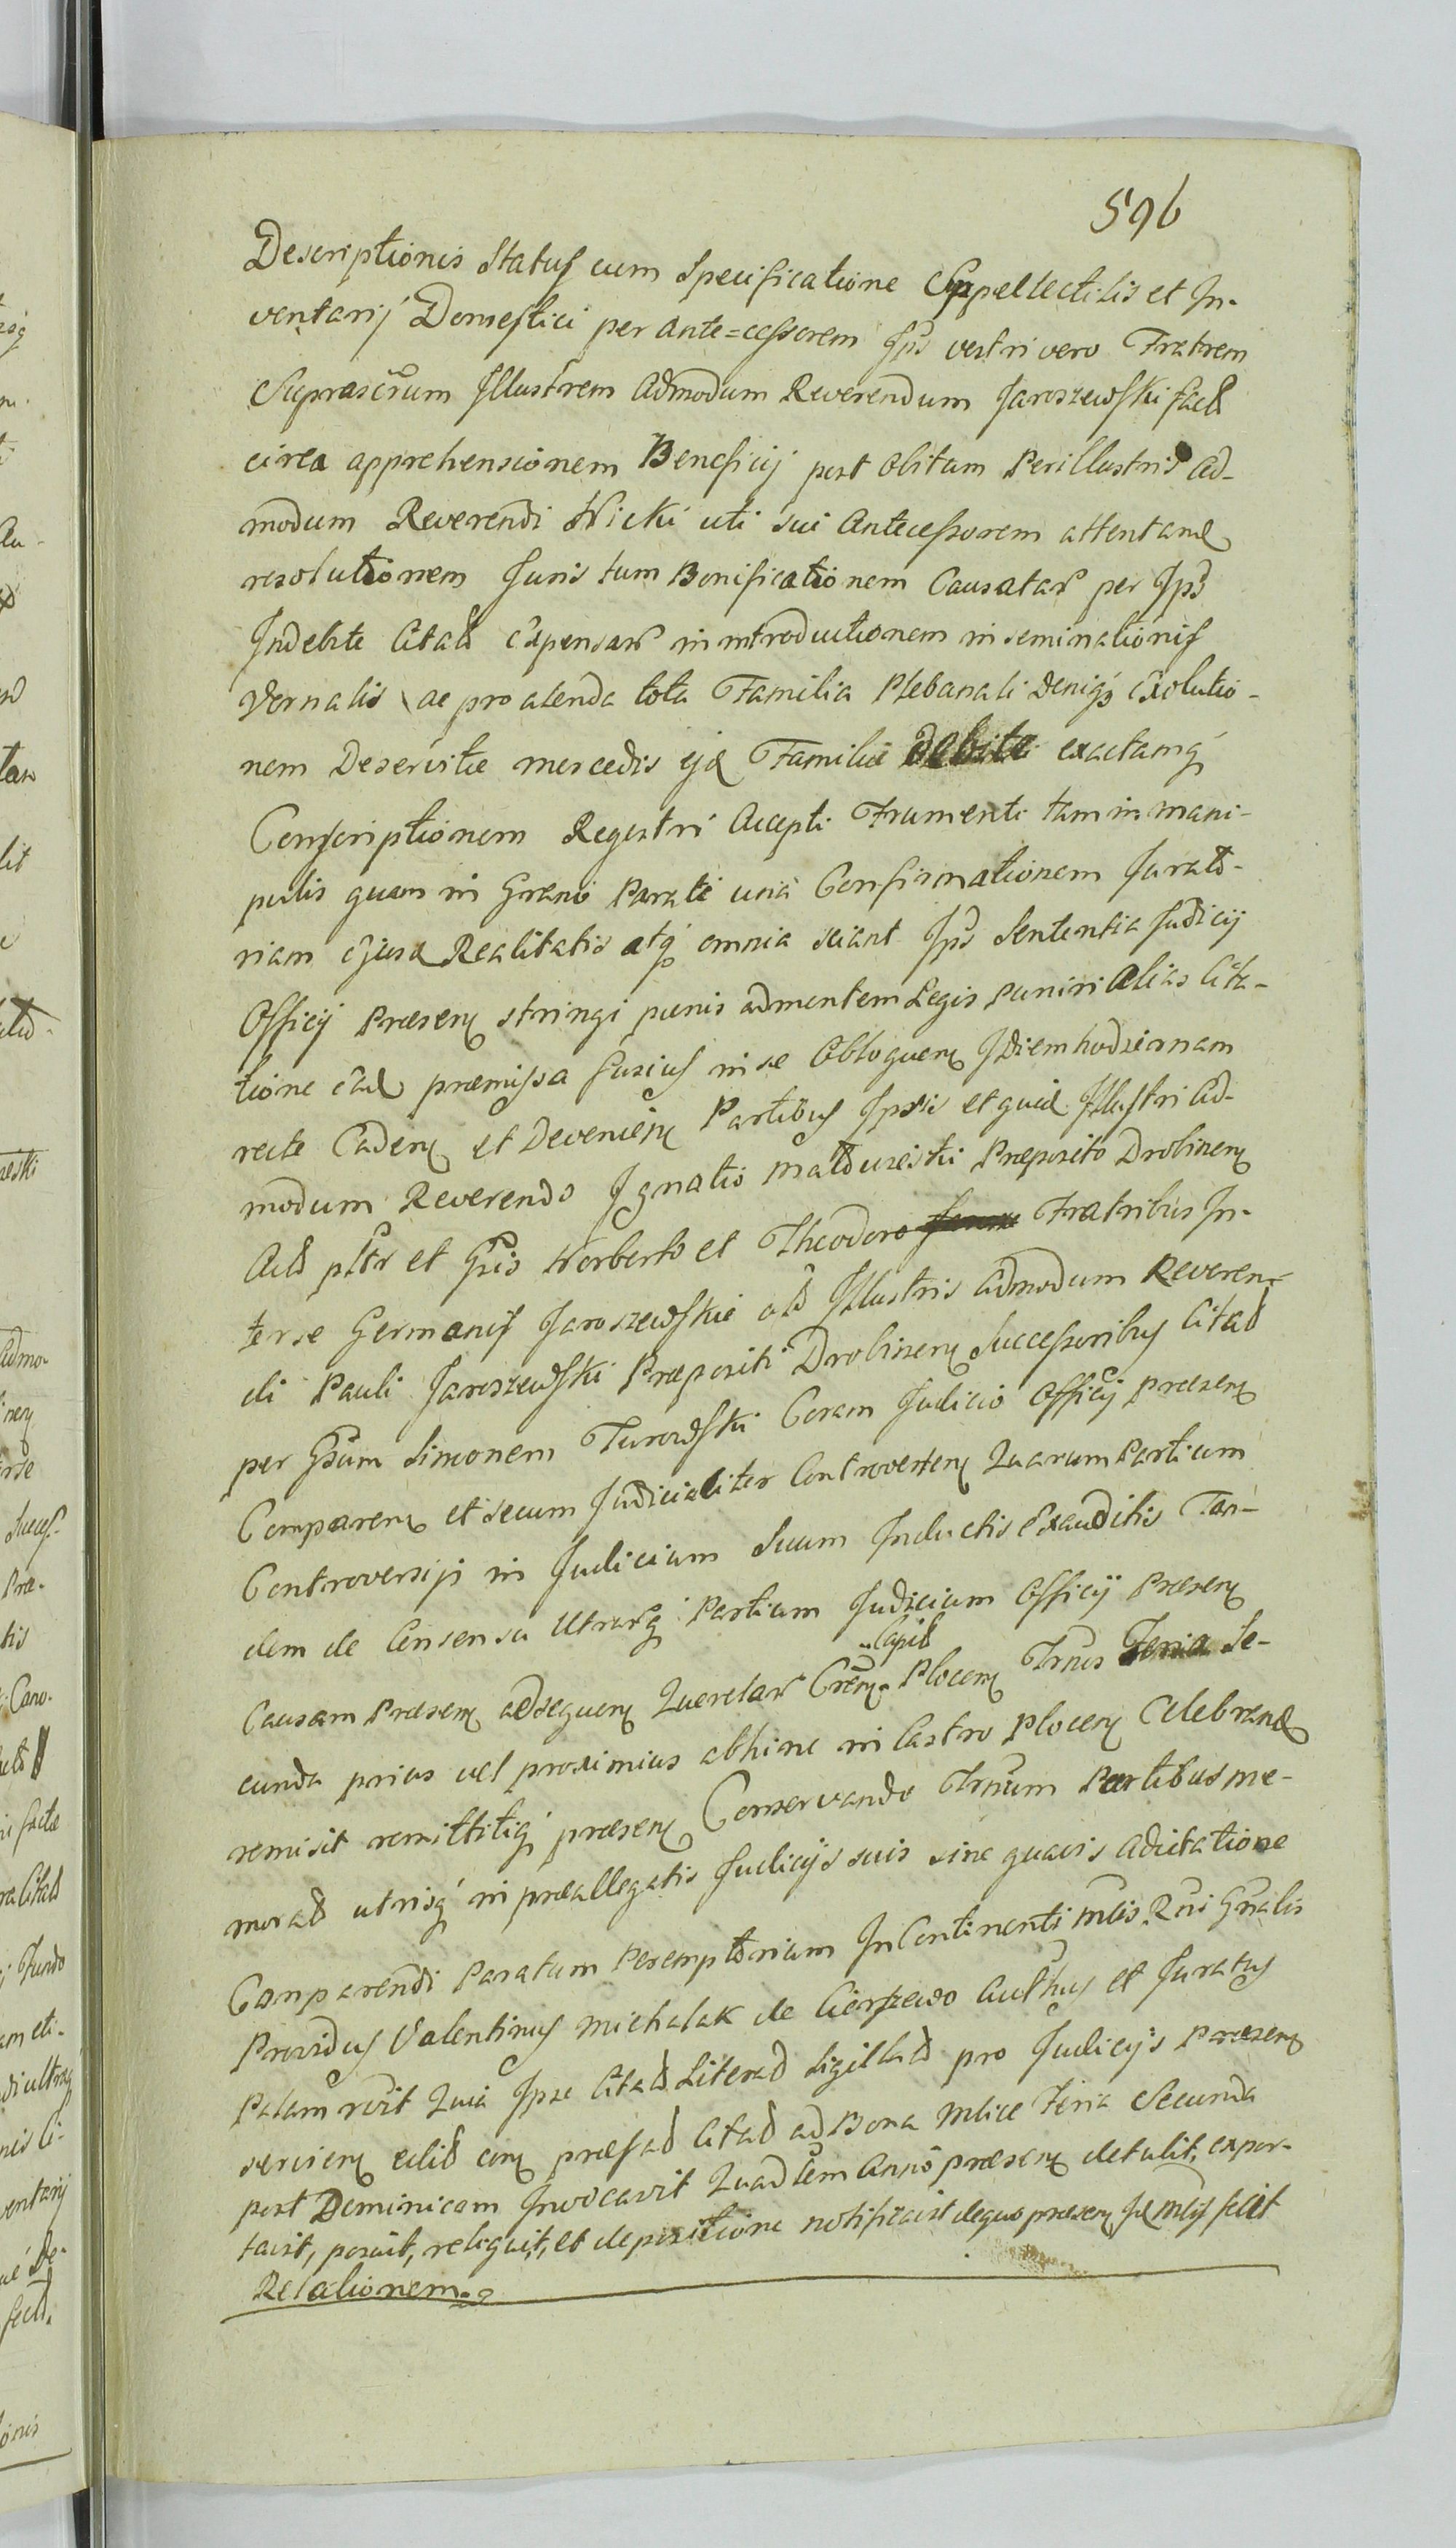 596
Descriptionis Status cum Specificatione Suppellectilis et In-
ventarij Domestici per Ante=cessorem Ips vestri vero Fratrem
Suprascrum Illustrem Admodum Reverendum Jaroszewski fact
circa apprehensionem Beneficij post Obitum Perillustris Ad-
modum Reverendi Wicki uti sui Antecessorem attentam
resolutionem Juris tum Bonificationem Causatar per Ips
Indebite Citat Expensar in introductionem inseminationis
Vernalis ac pro alenda tota Familia Plebanali deniq Exolutio-
nem Deservitæ mercedis ejd Familiæ debite exactamq
Conscriptionem Regestri Accepti Frumenti tam in mani-
pulis quam in Grano Parati una Confirmationem Jurato-
riam ejusd Realitatis atq omnia sciant Ips Sententia Judicij
Officij Præsen stringi pænis ad mentem Legis puniri Alias Cita-
tione ead præmissa fusius in se Obloquen Idiem hodiernam
recte Caden et Devenien Partibus Ipsis et quid Illustri Ad-
modum Reverendo Ignatio Præposito Drobinen
Act pltr et Gsis Norberto et Theodoro Fratribus In-
ter se Germanis Jaroszewskie old Illustris Admodum Reveren-
di Pauli Jaroszewski Præpositi Drobinen Successoribus Citat
per Gsum Simonem Turowski Coram Judicio Officij præsen
Comparen et secum Judicialiter Controverten Quarum Partium
Controversijs in Judicium Suum Inductis Exauditis Tan-
dem de Consensu Utrarq Partium Judicium Officij Præsen
Causam Præsen ad sequen Querelar Cren Capit Plocen Trnos Feria Se-
cunda prius vel proximius abhinc in Castro Plocen Celebrand
remisit remittitiq præsen Conservando Trnum Partibus me-
morat utrisq in præallegatis Judicijs suis sine quavis Adcitatione
Comparendi Paratum Peremptorium In Continenti Mlis Rni Gnalis
Providus Valentinus Michalak de Cierszewo Authus et Juratus
Palam rvit Quia Ipse Citat Literad Sigillat pro Judicijs Præsen
servien edit con præfat Citat ad Bona Mlice Feria Secunda
post Dominicam Invocavit Quadlem Anno præsen detulit, expor-
tavit, posuit, reliquit, et depositione notificavit de quo præsen Id Mlis fecit
Relationem.